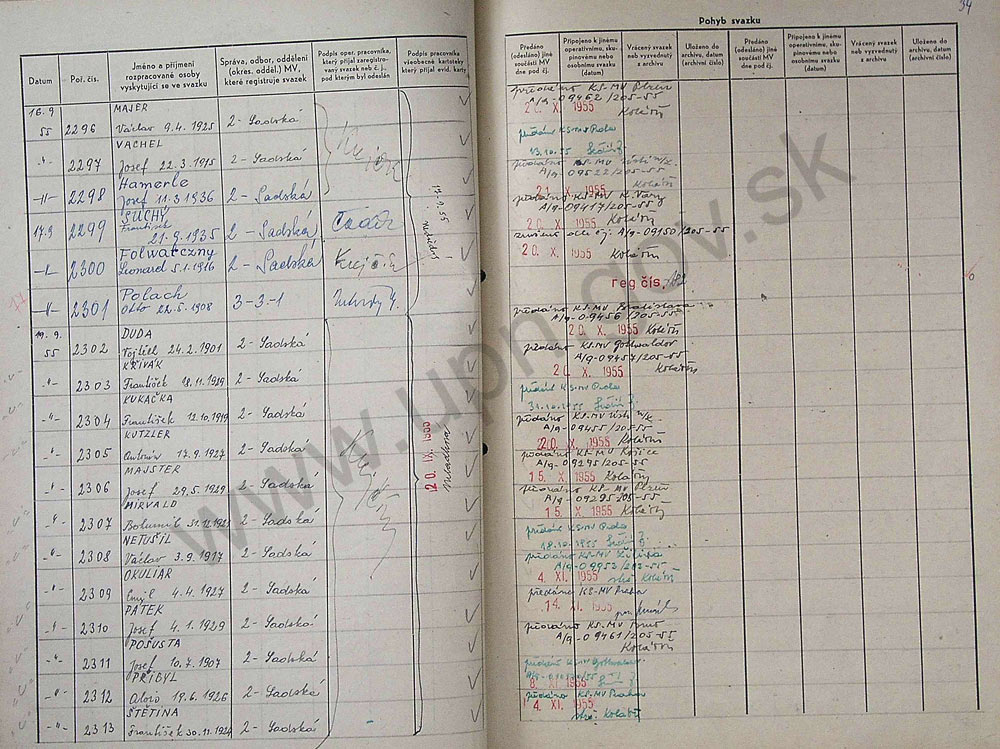 34
Pohyb svazku
Datum
Poř. čís.
Jméno a příjmení rozpracované osoby vyskytující se ve svazku
Správa, odbor, oddělení (okres. odděl.) MV, které registruje svazek
Podpis oper. pracovníka, který přijal zaregistrovaný svazek neb č. j., pod kterým byl odeslán
Podpis pracovníka všeobecné kartoteky který přijal evid. karty
Předáno (odesláno) jiné součásti MV dne pod čj.
Připojeno k jinému operativnímu, skupinovému nebo osobnímu svazku (datum)
Vrácený svazek neb vyzvednutý z archivu
Uloženo do archivu, datum (archivní číslo)
Předáno (odesláno) jiné součásti MV dne pod čj.
Připojeno k jinému operativnímu, skupinovému nebo osobnímu svazku (datum)
Vrácený svazek neb vyzvednutý z archivu
Uloženo do archivu, datum (archivní číslo)
16.9
MAJER
55 2296 Václav 9.4.1925 2-Sadská
VACHEL
-"- 2297 Josef 22.3.1915 2-Sadská
Hamerle
-"- 2298 Josef 11.3.1936 2-Sadská
SUCHÝ
František
17.9 2299 21.9.1935 2-Sadská
Folwarczny
2300 Leonard 5.1.1916 2-Sadská
Polach
-"- 2301 Otto 22.5.1908 3-3-1
19.9. DUDA
55 2302 Vojtěch 24.2.1901 2-Sadská
KŘIVÁK
-"- 2303 František 18.11.1929 2-Sadská
KUKAČKA
-"- 2304 František 12.10.1919 2-Sadská
KUTZLER
-"- 2305 Antonín 17.9.1927 2-Sadská
MAJSTER
-"- 2306 Josef 29.5.1929 2-Sadská
MIRVALD
-"- 2307 Bohumil 2-Sadská
NETUŠIL
-"- 2308 Václav 3.9.1917 2-Sadská
OKULIAR
-"- 2309 Emil 4.4.1927 2-Sadská
PÁTEK
-"- 2310 Josef 4.1.1929 2-Sadská
POŠUSTA
-"- 2311 Josef 10.7.1907 2-Sadská
PŘIBYL
-"- 2312 Alois 19.6.1926 2-Sadská
ŠTĚTINA
-"- 2313 František 30.11.1924 2-Sadská
20. IX. 1955
předáno KS-MV Plzeň
A/9-09462/205-55
20. X. 1955 Kolář
předáno KS-MV Praha
13.10.55
předáno KS-MV Ústí n/L.
A/9-09522/205-55
21. X. 1955 Kolář
předáno KS-MV K. Vary
A/9-09417/205-55
20. X. 1955 Kolář
A/9-09150/205-55
20. X. 1955 Kolář
reg čís.
předáno KS-MV Bratislava
A/9-09456/205-55
20. X. 1955 Kolář
předáno KS-MV Gottwaldov
A/9-09457/205-55
20. X. 1955 Kolář
předáno KS-MV Praha
31.10.55
předáno KS-MV Ústí n/L.
A/9-09455/205-55
20. X. 1955 Kolář
předáno KS-MV Košice
A/9-09295/205-55
15. X. 1955 Kolář
předáno KS-MV Plzeň
A/9-09295-205-55
15. X. 1955 Kolář
předáno KS-MV Praha
18.10.1955
předáno KS-MV Žilina
A/9-09953/205-55
4. XI. 1955 Kolář
předáno KS-MV Praha
14. XI. 1955
předáno KS-MV Brno
A/9-09461/205-55
Kolář
předáno KS-MV Gottwaldov
8. XI. 1955
předáno KS-MV Praha
4. XI. 1955
Kolář
www.upn.gov.sk